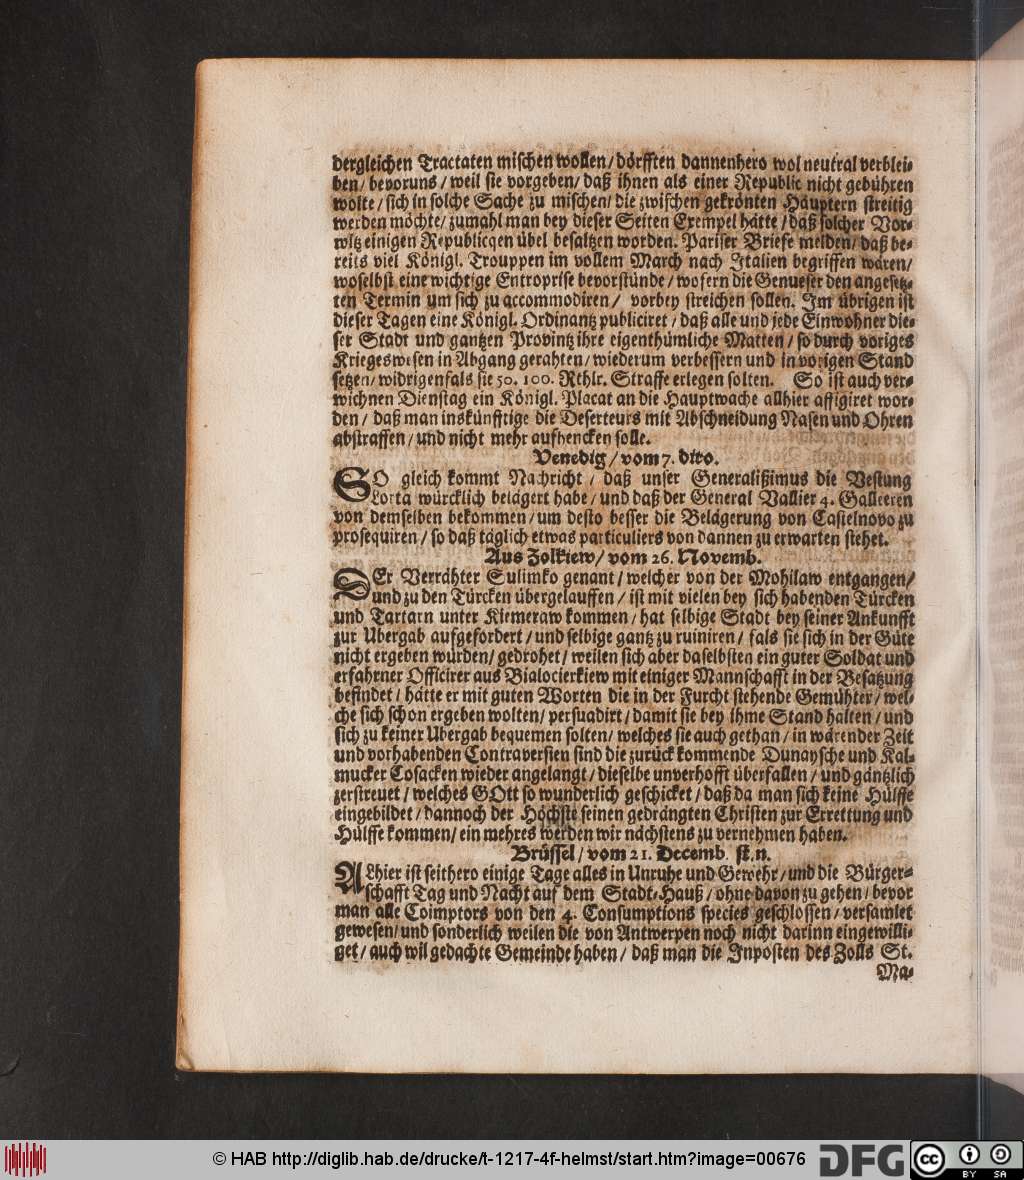 dergleichen Tractaten mischen wollen/ dörfften dannenhero wol neutral verblei-
ben/ bevoruns/ weil sie vorgeben/ daß ihnen als einer Republic nicht gebühren
wolte/ sich in solche Sache zu mischen/ die zwischen gekrönten Häuptern streitig
werden möchte/ zumahl man bey dieser Seiten Exempel hätte/ daß solcher Vor-
witz einigen Republicqen übel besaltzen worden. Pariser Briefe melden/ daß be-
reits viel Königl. Trouppen im vollem March nach Italien begriffen wären/
woselbst eine wichtige Entroprise bevorstünde/ wofern die Genueser den angesetz-
ten Termin um sich zu accommodiren/ vorbey streichen sollen. Im übrigen ist
dieser Tagen eine Königl. Ordinantz publiciret/ daß alle und jede Einwohner die-
ser Stadt und gantzen Provintz ihre eigenthümliche Matten/ so durch voriges
Kriegeswesen in Abgang gerahten/ wiederum verbessern und in vorigen Stand
setzen/ widrigenfals sie 50. 100. Rthlr. Straffe erlegen solten. So ist auch ver-
wichnen Dienstag ein Königl. Placat an die Hauptwache allhier affigiret wor-
den/ daß man inskünfftige die Deserteurs mit Abschneidung Nasen und Ohren
abstraffen/ und nicht mehr aufhencken solle.
Venedig/ vom 7. dito.
SO gleich kommt Nachricht/ daß unser Generalißimus die Vestung
Lorta würcklich belägert habe/ und daß der General Vallier 4. Galleeren
von demselben bekommen/ um desto besser die Belägerung von Castelnovo zu
prosequiren/ so daß täglich etwas particuliers von dannen zu erwarten stehet.
Aus Zolkiew/ vom 26. Novemb.
DEr Verrähter Sulimko genant/ welcher von der Mohilaw entgangen/
und zu den Türcken übergelauffen/ ist mit vielen bey sich habenden Türcken
und Tartarn unter Kiemeraw kommen/ hat selbige Stadt bey seiner Ankunfft
zur Ubergab aufgefordert/ und selbige gantz zu ruiniren/ fals sie sich in der Güte
nicht ergeben würden/ gedrohet/ weilen sich aber daselbsten ein guter Soldat und
erfahrner Officirer aus Bialocierkiew mit einiger Mannschafft in der Besatzung
befindet/ hätte er mit guten Worten die in der Furcht stehende Gemühter/ wel-
che sich schon ergeben wolten/ persuadirt/ damit sie bey ihme Stand halten/ und
sich zu keiner Ubergab bequemen solten/ welches sie auch gethan/ in wärender Zeit
und vorhabenden Contraversien sind die zurück kommende Dunaysche und Kal-
mucker Cosacken wieder angelangt/ dieselbe unverhofft überfallen/ und gäntzlich
zerstreuet/ welches GOtt so wunderlich geschicket/ daß da man sich keine Hülffe
eingebildet/ dannoch der Höchste seinen gedrängten Christen zur Errettung und
Hülffe kommen/ ein mehres werden wir nächstens zu vernehmen haben.
Brüssel/ vom 21. Decemb. st. n.
ALhier ist seithero einige Tage alles in Unruhe und Gewehr/ und die Bürger-
schafft Tag und Nacht auf dem Stadt-Hauß/ ohne davon zu gehen/ bevor
man alle Coimptors von den 4. Consumptions species geschlossen/ versamlet
gewesen/ und sonderlich weilen die von Antwerpen noch nicht darinn eingewilli-
get/ auch wil gedachte Gemeinde haben/ daß man die Inposten des Zolls St.
Ma-
© HAB http://diglib.hab.de/drucke/t-1217-4f-helmst/start.htm?image=00676
DFG
cc
BY SA